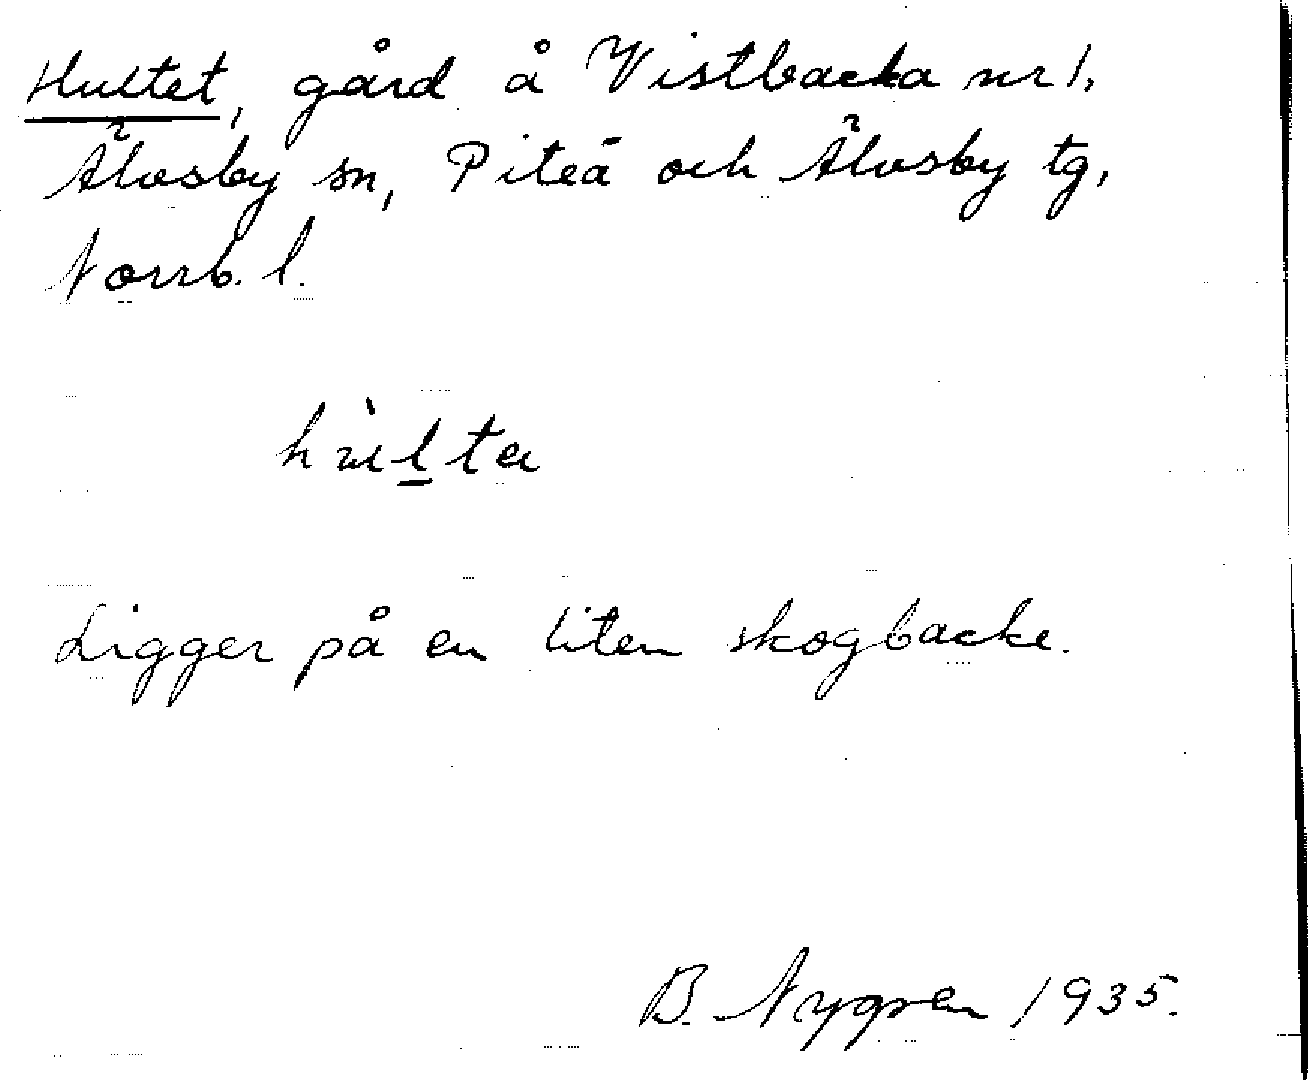 Hultet, gård å Vistbacka nr 1,
Älvsby sn, Piteå och Älvsby tg,
Norrb. l.
Ligger på en liten skogbacke.
B. Nygren 1935.